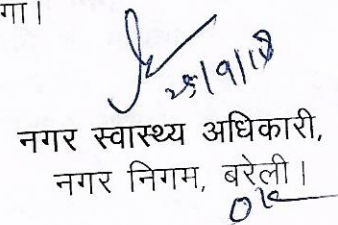 गा।
25/9/18
नगर स्वास्थ्य अधिकारी,
नगर निगम, बरेली।